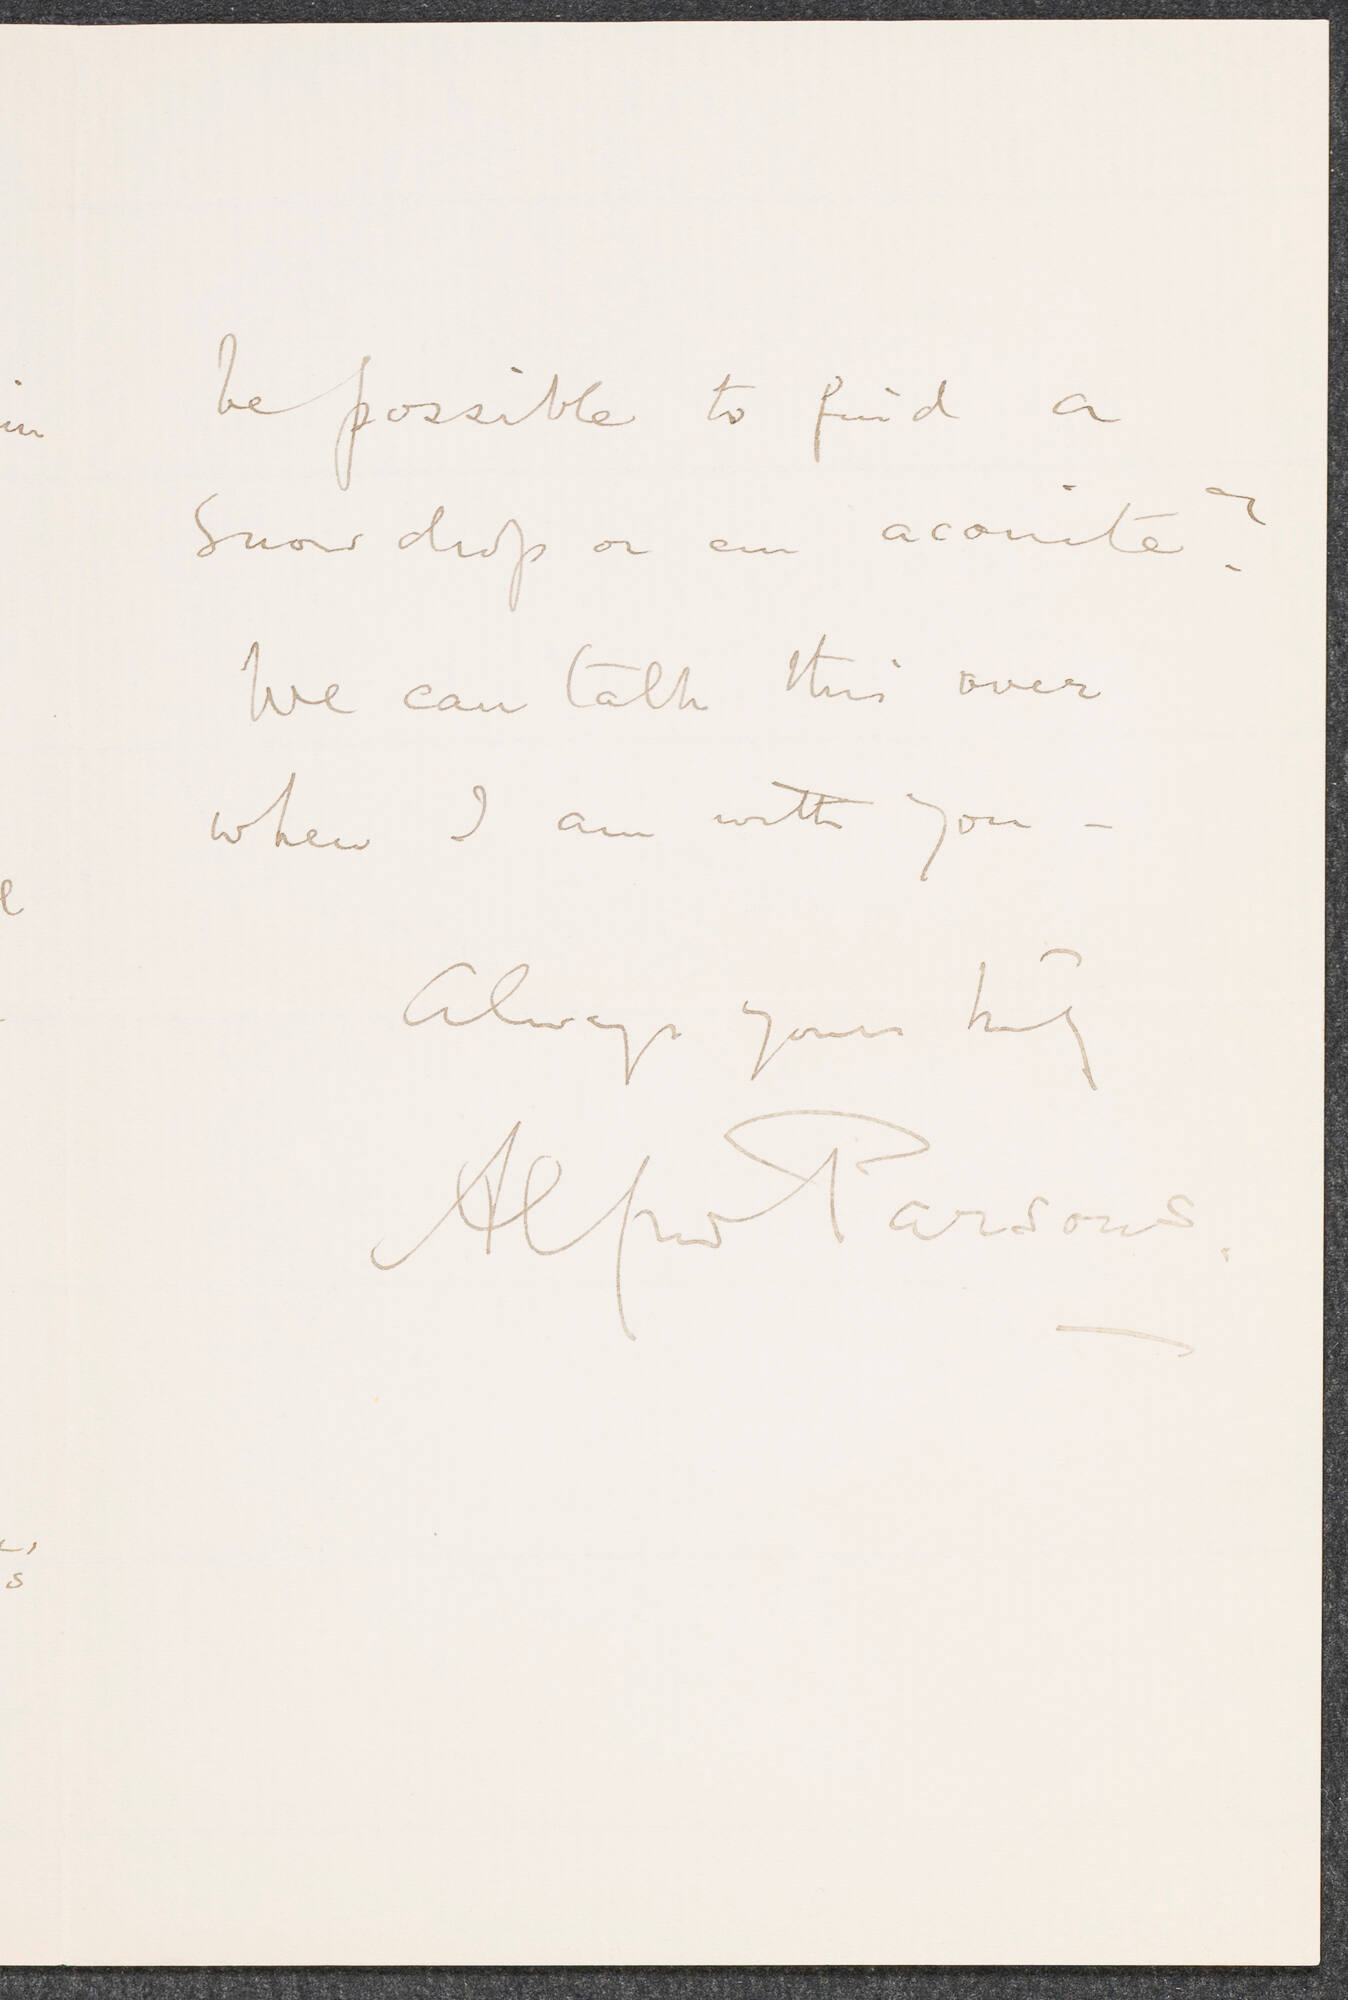 be possible to find a
snow drop or an aconite?
We can talk this over
when I am with you -
Always yours truly
Alfred Parsons.
in